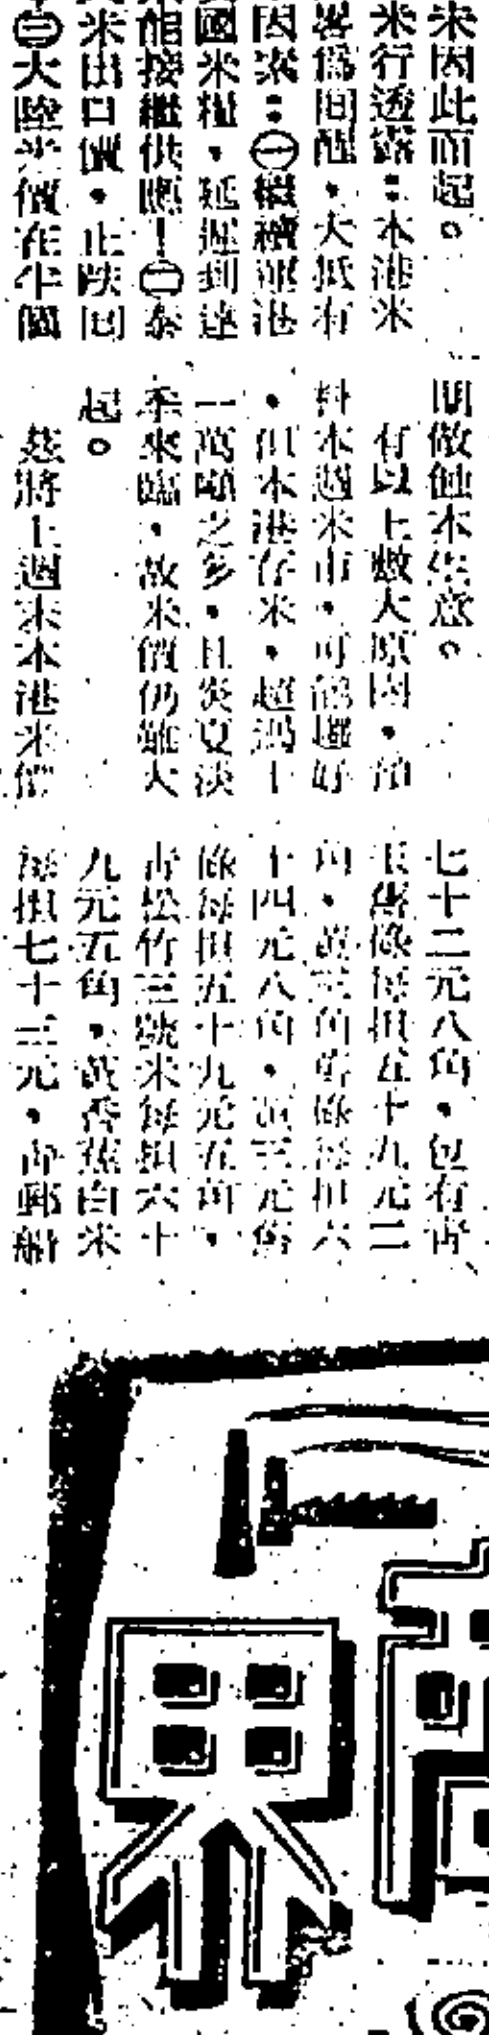 来因此而起。
米行透露：本港米
畧爲回醒，大抵有
因素：㊀繼續運港
國米糧，延遲到達
能接繼供應！㊁泰
米出口價，止跌回
㊂大陸米價在牛個
間做蝕本生意。
有以上數大原因，預
料本週米市，可能趨好
，但本港存米，超過十
一萬噸之多，且炎夏淡
季來臨，故米價仍難大
起。
茲將上週末本港米價
七十二元八角，包有青
玉舊條每担五十九元二
角，黃三角舊條每担六
十四元八角，黃三元舊
條每担五十九元五角，
青松竹三號米每担六十
九元五角，黃香蕉白米
每担七十三元，郵船
界